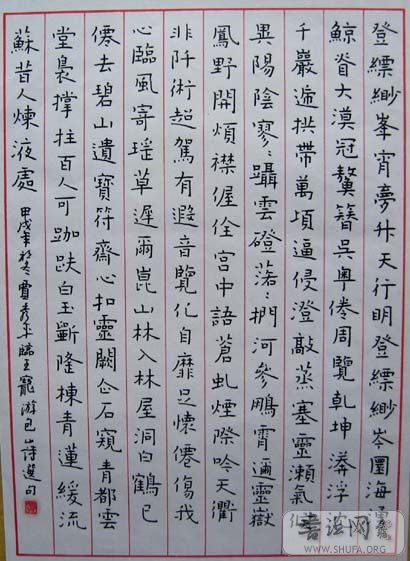 登縹緲峯宵夢升天行明登縹緲岑圜海
鯨脊大漠冠鰲簪吳粵倦周覽乾坤漭浮
千巖遞拱帶萬頃逼侵澄敲蒸塞靈瀨氣化
異陽陰寥:躡雲磴:捫河參鵬霄邇靈嶽
鳳野開煩襟偓佺宮中語蒼虬煙際吟天衢
非阡術超駕有遐音覽化自靡足懷僊傷我
心臨風寄瑶草遲爾崑山林入林屋洞白鶴已
僊去碧山遺寶符齋心扣靈闕企石窺青都雲
堂裊撑拄百人可跏趺白玉斲隆棟青蓮緩流
蘇昔人煉液處
甲戌年於冬賈秀平臨王寵游包山詩選句
书法网
WWW.SHUFA.ORG